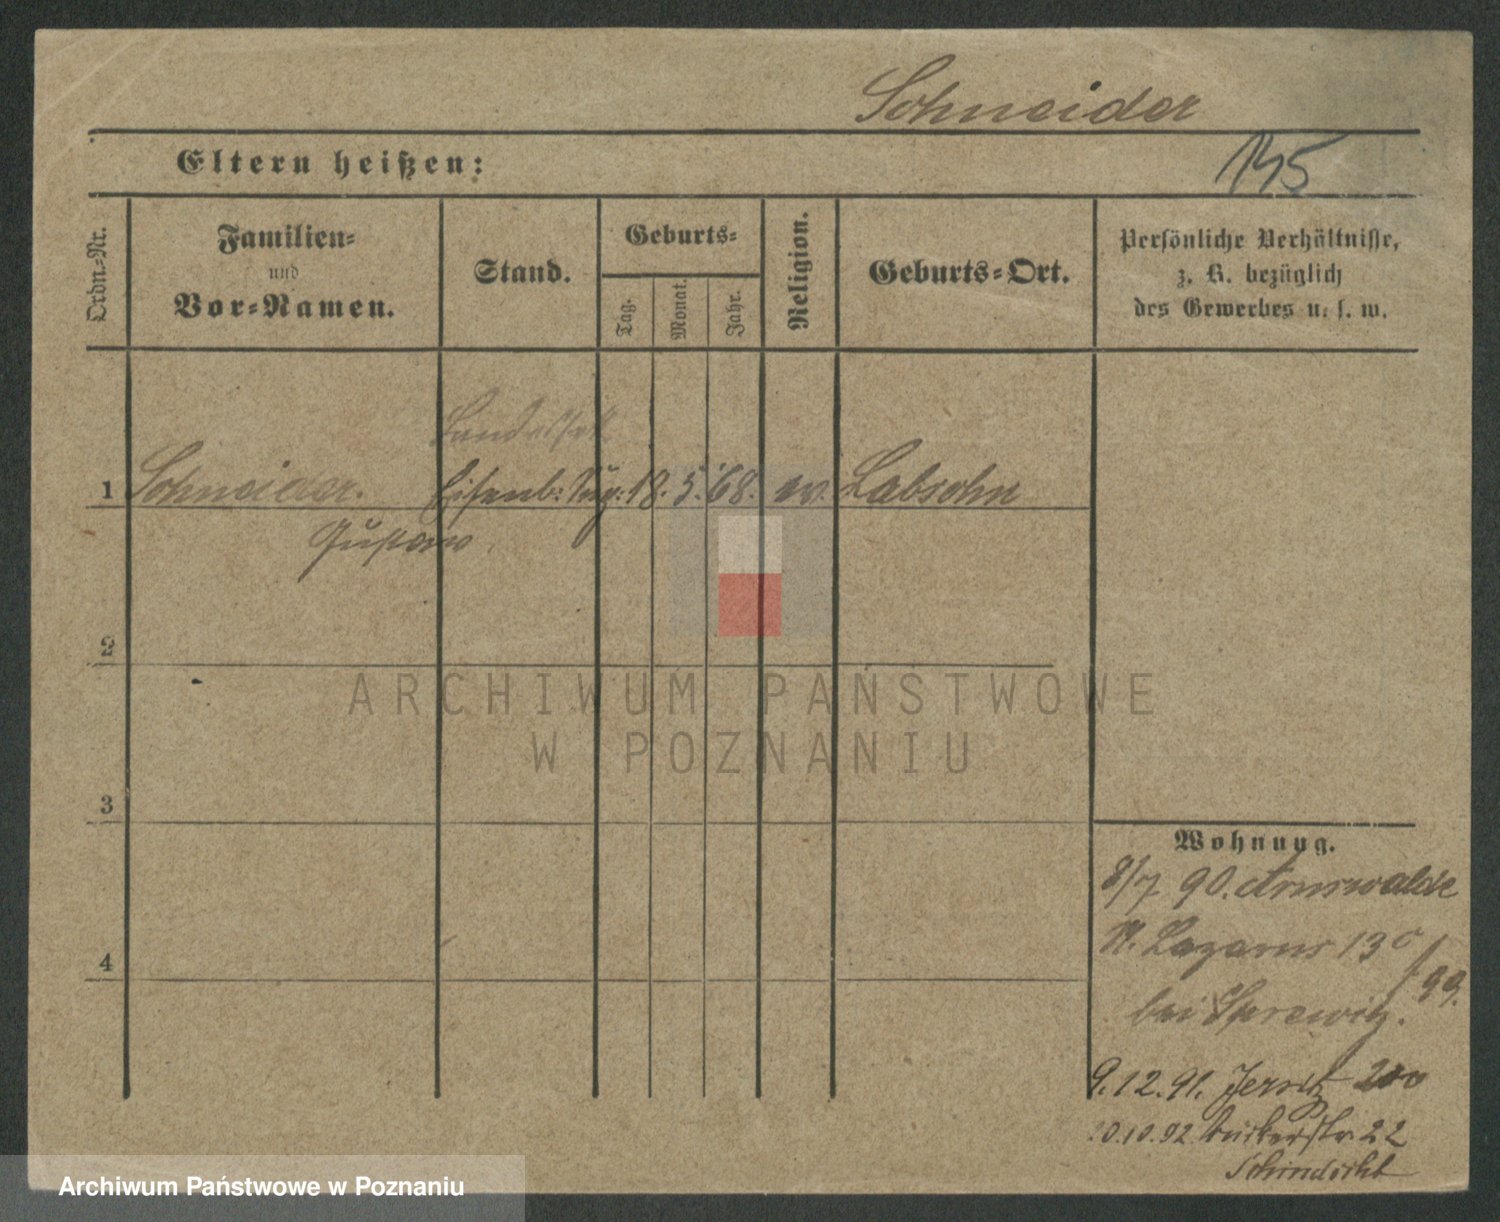 Schneider
145
Eltern heißen:
Ordn.-Nr.
Familien-
und
Vor-Namen.
Stand.
Geburts-
Tag.
Monat.
Jahr.
Religion.
Geburts-Ort.
Persönliche Verhältnisse,
z. B. bezüglich
des Gewerbes u. s. w.
1 Schneider. Eisenb: 18. 5. 68. ev. Labsohn
Gustav
2
ARCHIWUM PAŃSTWOWE
W POZNANIU
3
Wohnung.
8/7 90. Arnswalde
St. Lazarus 13
bei
4
9.12.91. Jersitz 200
10.92 22
Archiwum Państwowe w Poznaniu